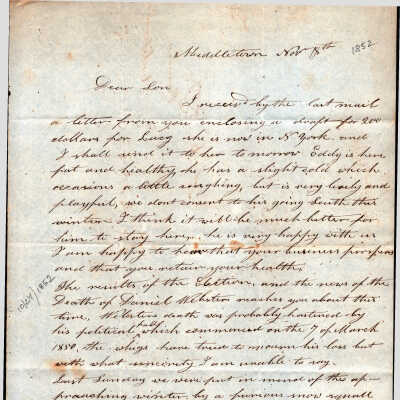 Middletown Nov 8th 1852
Dear Son
I receivd by the last mail
a letter from you enclosing a draft for 200
dollars for Lucy she is now in N York and
I shall send it to her to morrow Eddy is here
fat and healthy, he has a slight cold which
occasions a little coughing, but is very lively and
playfull, we dont consent to his going South this
winter I think it will be much better for
him to stay here, he is very happy with us
I am happy to hear that your business prospers
and that you retain your health,
The results of the Election, and the news of the
Death of Daniel Webster reaches you about this
time, Websters death was probably hastened by
his political fall which commenced on the 7 of March
1850, the whigs have tried to mourn his loss but
with what sincerity I am unable to say.
Last Sunday we were put in mind of the ap-
proaching winter by a furious snow squall
10/24/1852